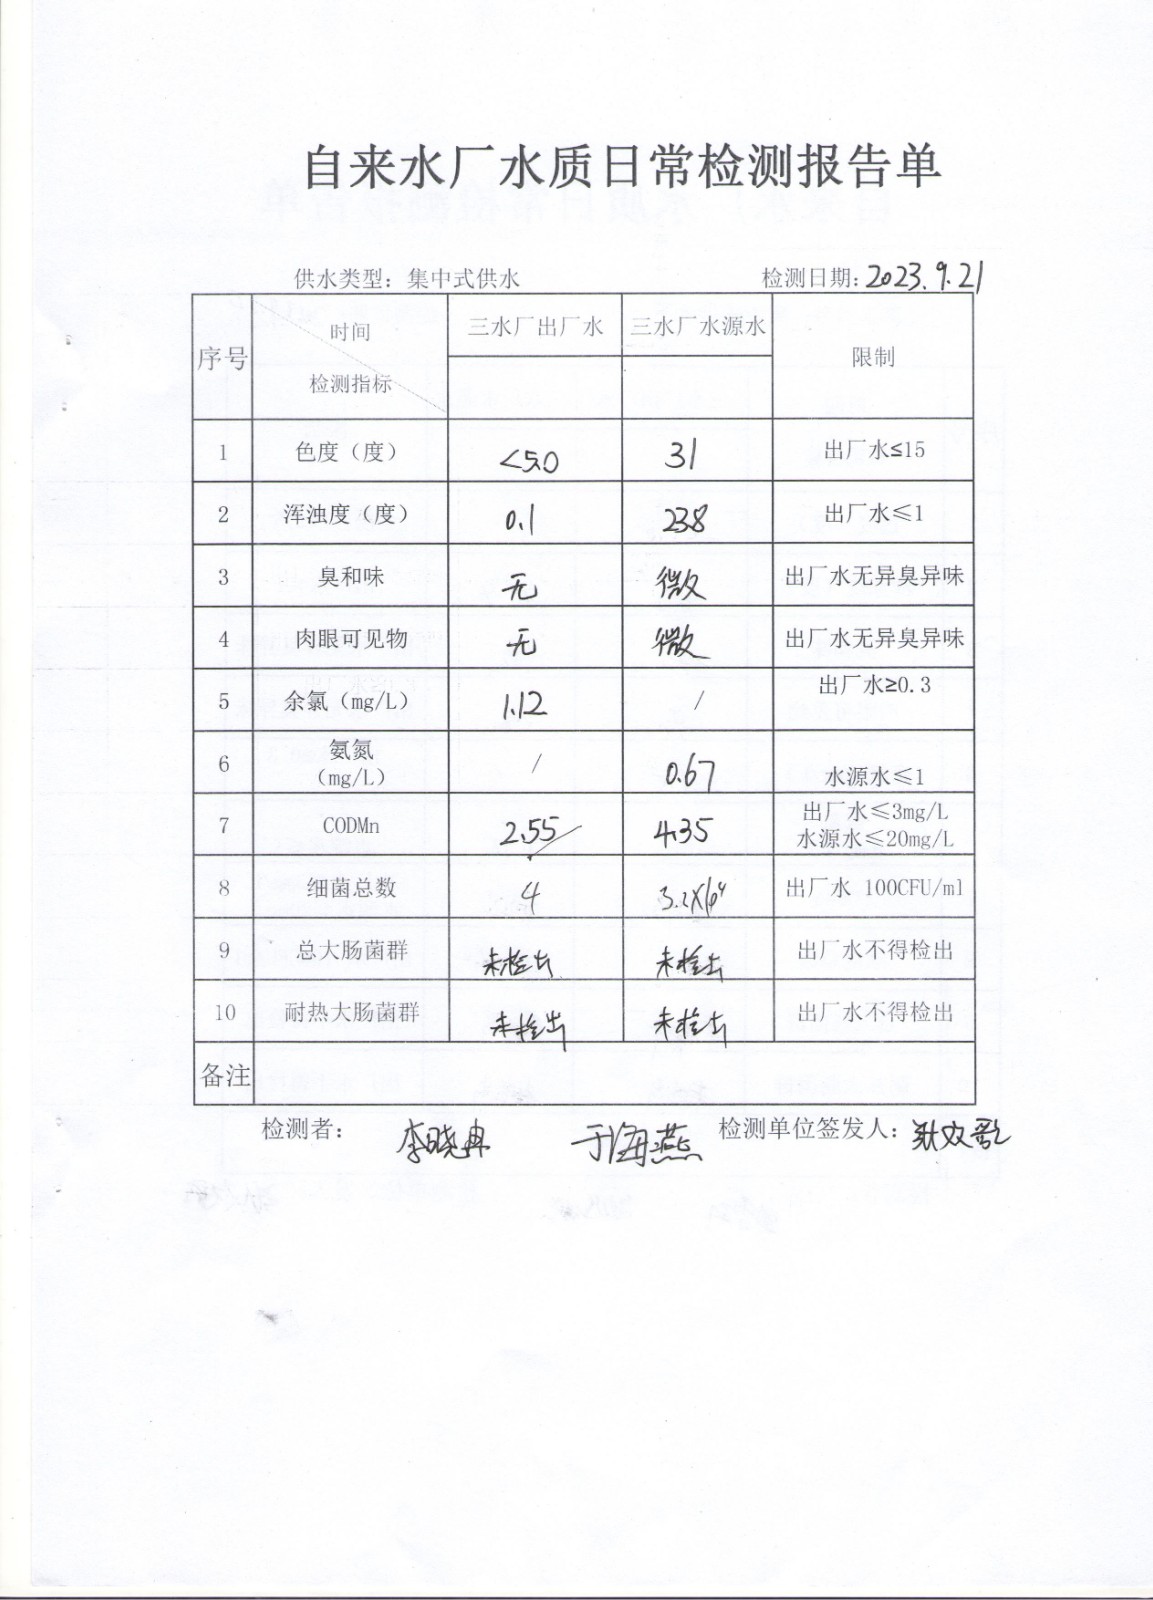 自来水厂水质日常检测报告单
供水类型：集中式供水 检测日期：2023.9.21
序号 时间 检测指标 三水厂出厂水 三水厂水源水 限制
1 色度（度） <5.0 31 出厂水≤15
2 浑浊度（度） 0.1 23.8 出厂水≤1
3 臭和味 无 微 出厂水无异臭异味
4 肉眼可见物 无 微 出厂水无异臭异味
5 余氯（mg/L） 1.12 / 出厂水≥0.3
6 氨氮 / 0.67 水源水≤1
（mg/L）
7 CODMn 2.55 4.35 出厂水≤3mg/L
水源水≤20mg/L
8 细菌总数 4 出厂水 100CFU/ml
9 总大肠菌群 未检出 未检出 出厂水不得检出
10 耐热大肠菌群 未检出 未检出 出厂水不得检出
备注
检测者： 李晓冉 于海燕 检测单位签发人：